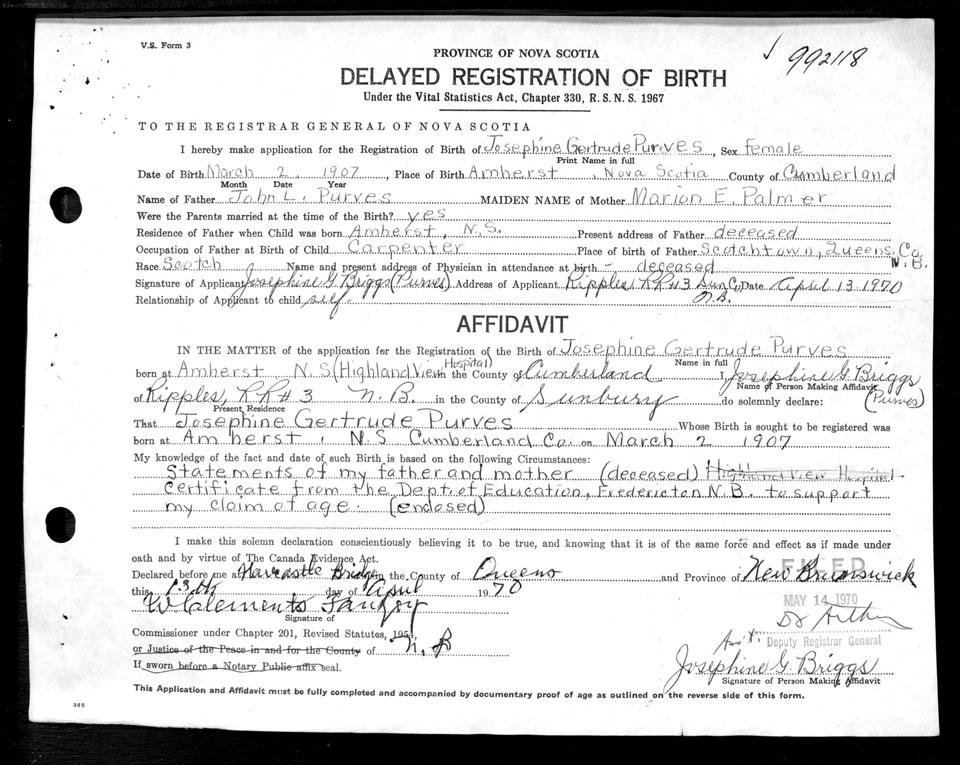 V.S. Form 3
992118
PROVINCE OF NOVA SCOTIA
DELAYED REGISTRATION OF BIRTH
Under the Vital Statistics Act, Chapter 330, R.S.N.S. 1967
TO THE REGISTRAR GENERAL OF NOVA SCOTIA
I hereby make application for the Registration of Birth of Josephine Gertrude Purves, Sex female
Print Name in full
Date of Birth March 2, 1907, Place of Birth Amherst, Nova Scotia County of Cumberland
Month Date Year
Name of Father John L. Purves MAIDEN NAME of Mother Marion E. Palmer
Were the Parents married at the time of the Birth? yes
Residence of Father when Child was born Amherst, N.S. Present address of Father deceased
Occupation of Father at Birth of Child Carpenter Place of birth of Father Scotchtown, Queens, Co. N.B.
Race Scotch Name and present address of Physician in attendance at birth - deceased
Signature of Applicant Josephine G Briggs (Purves) Address of Applicant Ripples, RR#3 Sun Co N.B. Date April 13 1970
Relationship of Applicant to child self
AFFIDAVIT
IN THE MATTER of the application for the Registration of the Birth of Josephine Gertrude Purves
Name in full
born at Amherst N.S (Highland View Hospital) in the County of Cumberland I, Josephine G Briggs (Purves)
Name of Person Making Affidavit
of Ripples, RR#3 N.B. in the County of Sunbury do solemnly declare:
Present Residence
That Josephine Gertrude Purves Whose Birth is sought to be registered was
born at Amherst, N.S Cumberland Co. on March 2 1907
My knowledge of the fact and date of such Birth is based on the following Circumstances:
Statements of my father and mother (deceased) Highland View Hospital
certificate from the Dept. of Education, Fredericton N.B. to support
my claim of age. (enclosed)
I make this solemn declaration conscientiously believing it to be true, and knowing that it is of the same force and effect as if made under
oath and by virtue of The Canada Evidence Act.
Declared before me at Newcastle Bridge in the County of Queens and Province of New Brunswick
this 13th day of April 1970
FILED
MAY 14 1970
W Clements
Signature of
Commissioner under Chapter 201, Revised Statutes, 1954, N.B
or Justice of the Peace in and for the County of
If sworn before a Notary Public affix seal.
Ass't. Deputy Registrar General
Josephine G. Briggs
Signature of Person Making Affidavit
This Application and Affidavit must be fully completed and accompanied by documentary proof of age as outlined on the reverse side of this form.